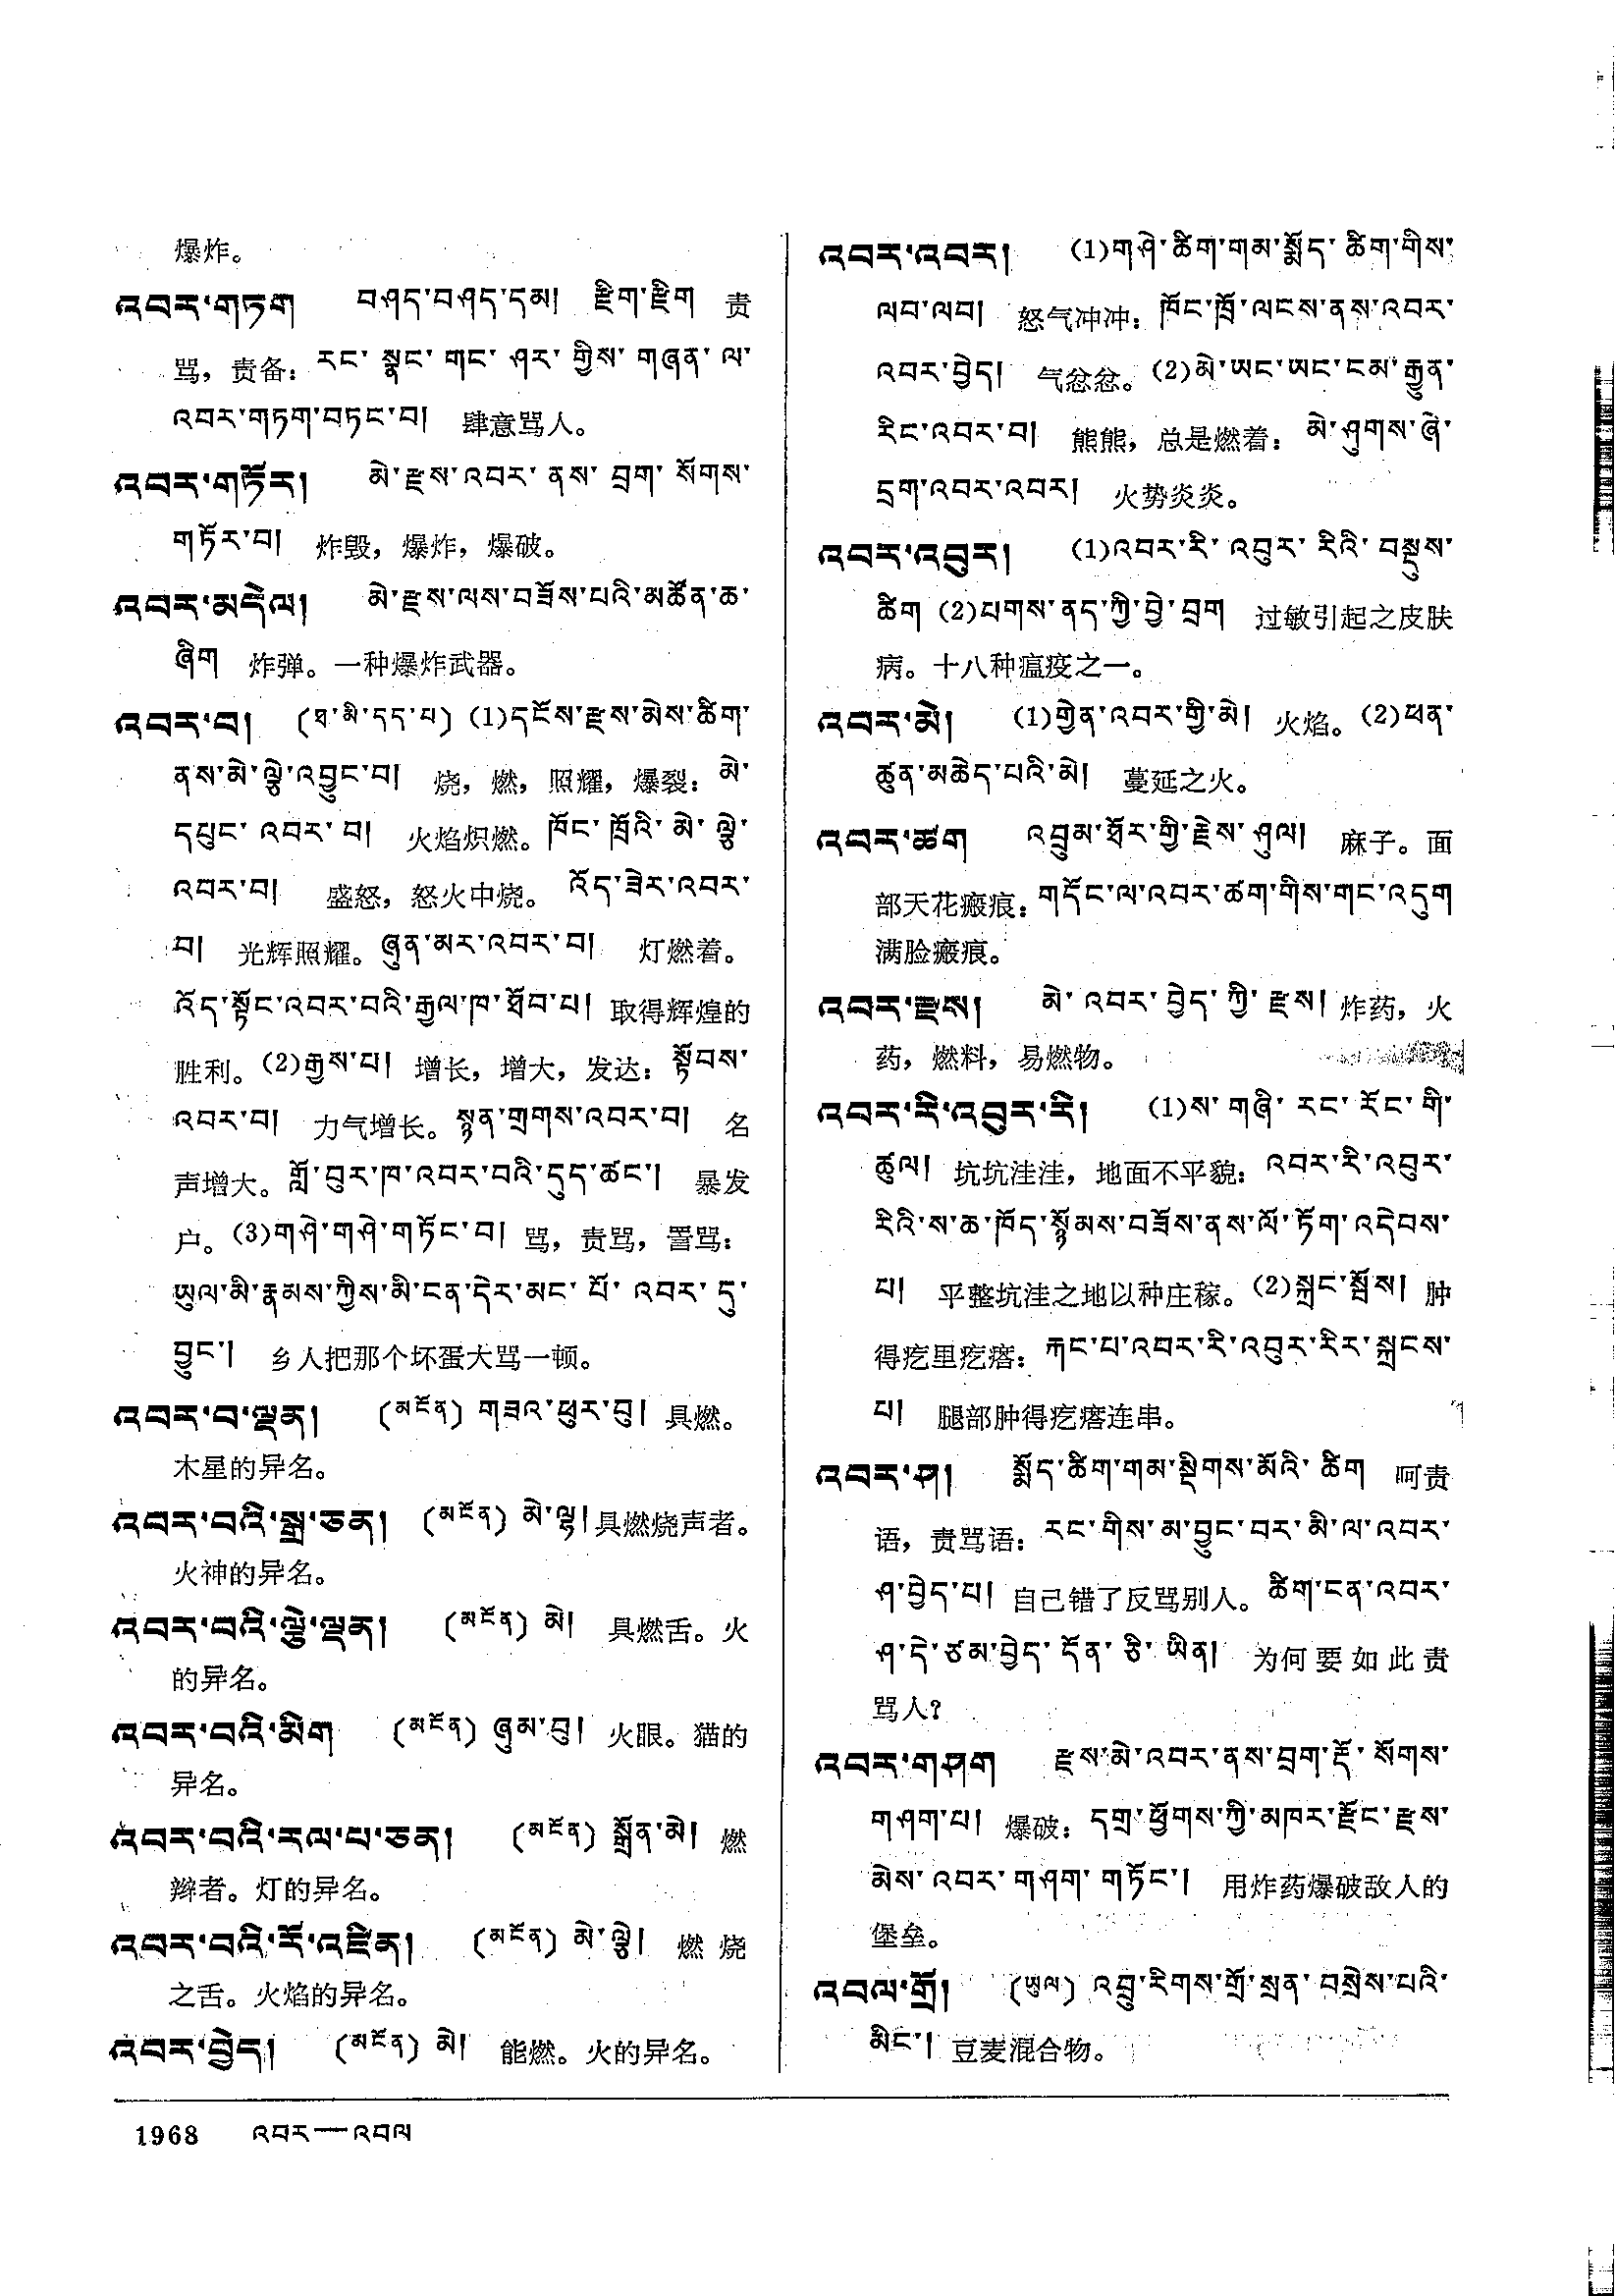 爆炸。
འབར་གཏག བཤད་བཤད་དམ། རྫིག་རྫིག 责
骂，责备：རང་ སྣང་ གང་ ཤར་ གྱིས་ གཞན་ ལ་
འབར་གཏག་བཏང་བ། 肆意骂人。
འབར་གཏོར། མེ་རྫས་འབར་ ནས་ བྲག་ སོགས་
གཏོར་བ། 炸毁，爆炸，爆破。
འབར་མདེལ། མེ་རྫས་ལས་བཟོས་པའི་མཚོན་ཆ་
ཞིག 炸弹。一种爆炸武器。
འབར་བ། (ཐ་མི་དད་པ) (1)དངོས་རྫས་མེས་ཚིག་
ནས་མེ་ལྕེ་འབྱུང་བ། 烧，燃，照耀，爆裂：མེ་
དཔུང་ འབར་ བ། 火焰炽燃。ཁོང་ ཁྲོའི་ མེ་ ལྕེ་
འབར་བ། 盛怒，怒火中烧。འོད་ཟེར་འབར་
བ། 光辉照耀。ཞུན་མར་འབར་བ། 灯燃着。
འོད་སྟོང་འབར་བའི་རྒྱལ་ཁ་ཐོབ་པ། 取得辉煌的
胜利。(2)རྒྱས་པ། 增长，增大，发达：སྟོབས་
འབར་བ། 力气增长。སྙན་གྲགས་འབར་བ། 名
声增大。གློ་བུར་ཁ་འབར་བའི་དུད་ཚང་། 暴发
户。(3)གཤེ་གཤེ་གཏོང་བ། 骂，责骂，詈骂：
ཡུལ་མི་རྣམས་ཀྱིས་མི་ངན་དེར་མང་ པོ་ འབར་ དུ་
བྱུང་། 乡人把那个坏蛋大骂一顿。
འབར་བ་ལྡན། (མངོན) གཟའ་ཕུར་བུ། 具燃。
木星的异名。
འབར་བའི་སྒྲ་ཅན། (མངོན) མེ་ལྷ། 具燃烧声者。
火神的异名。
འབར་བའི་ལྕེ་ལྡན། (མངོན) མེ། 具燃舌。火
的异名。
འབར་བའི་མིག (མངོན) ཞུམ་བུ། 火眼。猫的
异名。
འབར་བའི་རལ་པ་ཅན། (མངོན) སྒྲོན་མེ། 燃
辫者。灯的异名。
འབར་བའི་རོ་འཛིན། (མངོན) མེ་ལྕེ། 燃 烧
之舌。火焰的异名。
འབར་བྱེད། (མངོན) མེ། 能燃。火的异名。
འབར་འབར། (1)གཤེ་ཚིག་གམ་སྨོད་ ཚིག་གིས་
ལབ་ལབ། 怒气冲冲：ཁོང་ཁྲོ་ལངས་ནས་འབར་
འབར་བྱེད། 气忿忿。(2)མེ་ཡང་ཡང་ངམ་རྒྱུན་
རིང་འབར་བ། 熊熊，总是燃着：མེ་ཤུགས་ཞེ་
དྲག་འབར་འབར། 火势炎炎。
འབར་འབུར། (1)འབར་རི་ འབུར་ རིའི་ བསྡུས་
ཚིག (2)པགས་ནད་ཀྱི་བྱེ་བྲག 过敏引起之皮肤
病。十八种瘟疫之一。
འབར་མེ། (1)གྱེན་འབར་གྱི་མེ། 火焰。(2)ཕན་
ཚུན་མཆེད་པའི་མེ། 蔓延之火。
འབར་ཚག འབྲུམ་ཐོར་གྱི་རྗེས་ཤུལ། 麻子。面
部天花瘢痕：གདོང་ལ་འབར་ཚག་གིས་གང་འདུག
满脸瘢痕。
འབར་རྫས། མེ་ འབར་ བྱེད་ ཀྱི་ རྫས། 炸药，火
药，燃料，易燃物。
འབར་རི་འབུར་རི། (1)ས་ གཞི་ རང་ རོང་ གི་
ཚུལ། 坑坑洼洼，地面不平貌：འབར་རི་འབུར་
རིའི་ས་ཆ་ཁོད་སྙོམས་བཟོས་ནས་ལོ་ཏོག་འདེབས་
པ། 平整坑洼之地以种庄稼。(2)སྐྲང་སྦོས། 肿
得疙里疙瘩：རྐང་པ་འབར་རི་འབུར་རིར་སྐྲངས་
པ། 腿部肿得疙瘩连串。
འབར་ཤ། སྨོད་ཚིག་གམ་སྡིགས་མོའི་ ཚིག 呵责
语，责骂语：རང་གིས་མ་བྱུང་བར་མི་ལ་འབར་
ཤ་བྱེད་པ། 自己错了反骂别人。ཚིག་ངན་འབར་
ཤ་དེ་ཙམ་བྱེད་ དོན་ ཅི་ ཡིན། 为何要如此责
骂人？
འབར་གཤག རྫས་མེ་འབར་ནས་བྲག་རྡོ་ སོགས་
གཤག་པ། 爆破：དགྲ་ཕྱོགས་ཀྱི་མཁར་རྫོང་རྫས་
མེས་འབར་གཤག་ གཏོང་། 用炸药爆破敌人的
堡垒。
འབལ་གྲོ། (ཡུལ) འབྲུ་རིགས་གྲོ་སྲན་ བསྲེས་པའི་
མིང་། 豆麦混合物。
1968 འབར—འབལ